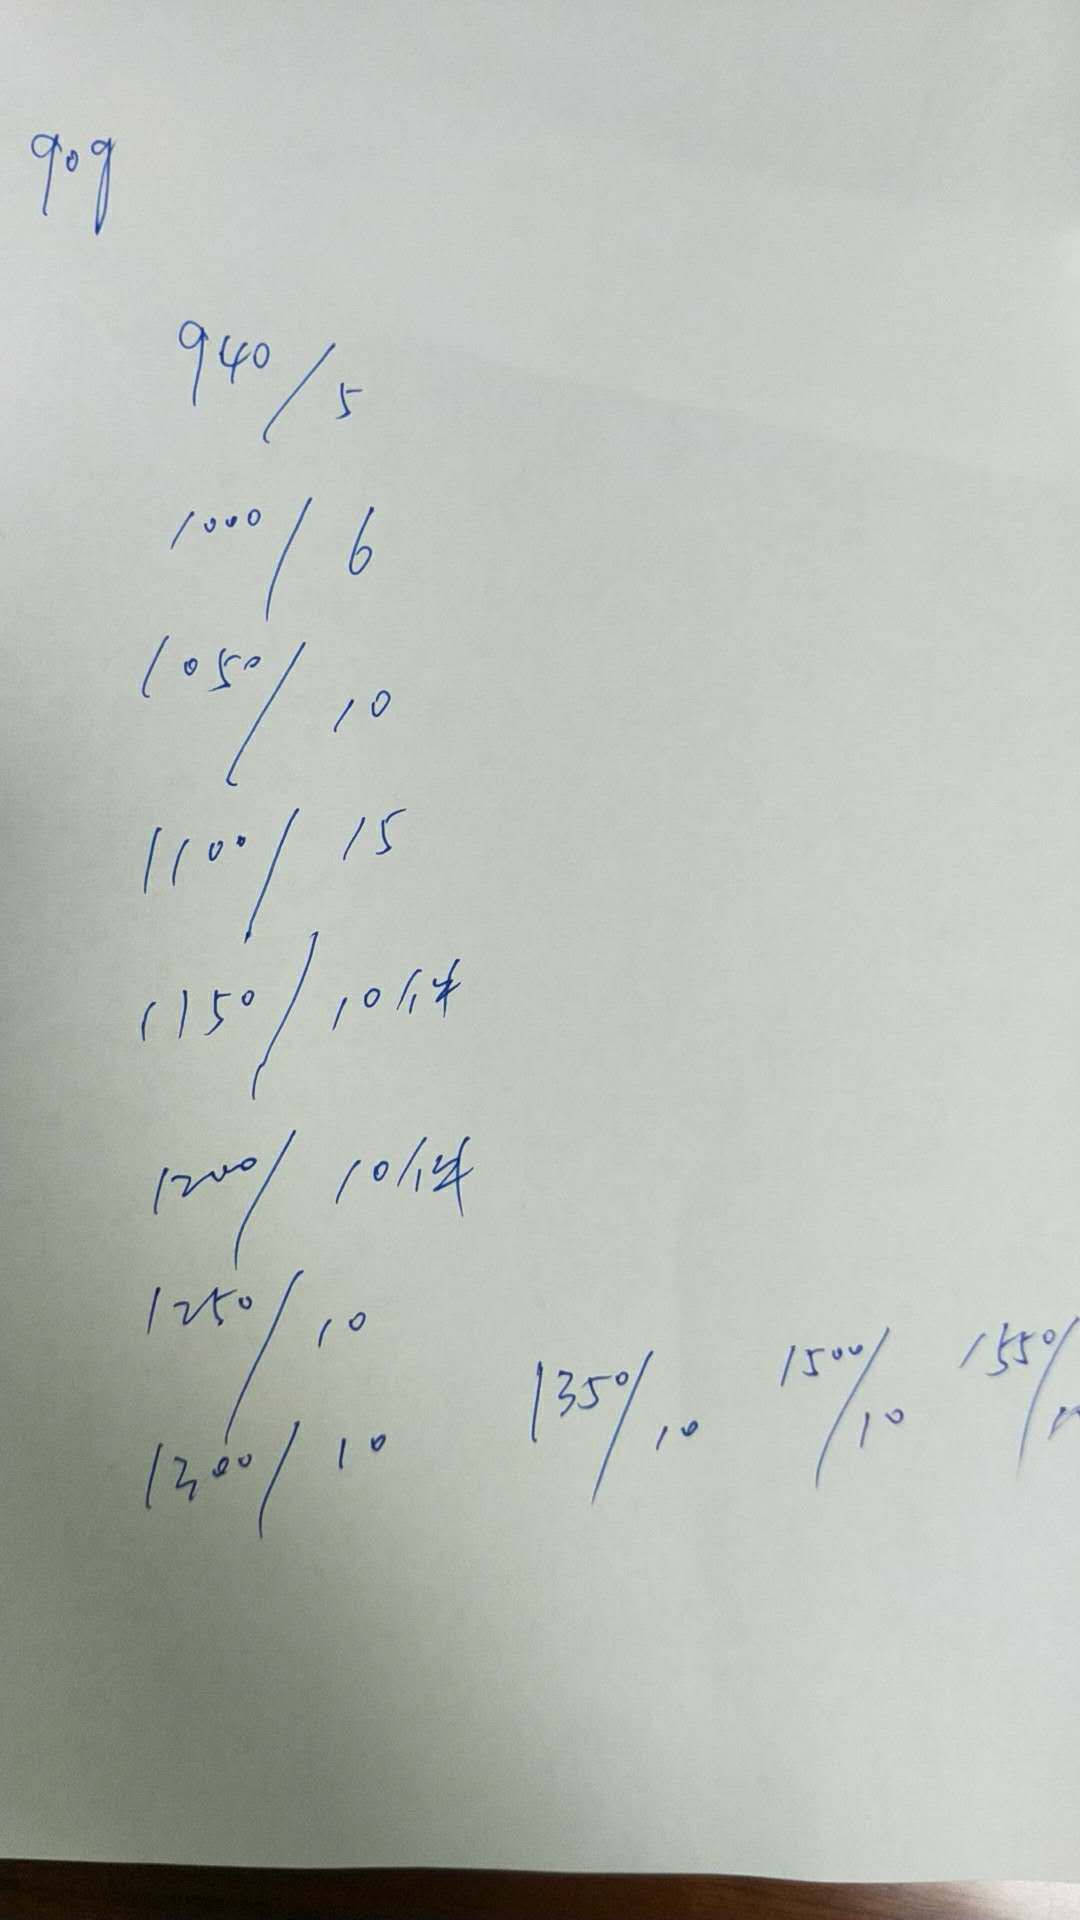 909
940/5
1000/6
1050/10
1100/15
1150/10件
1200/10件
1250/10
1300/10
1350/10
1500/10
1550/